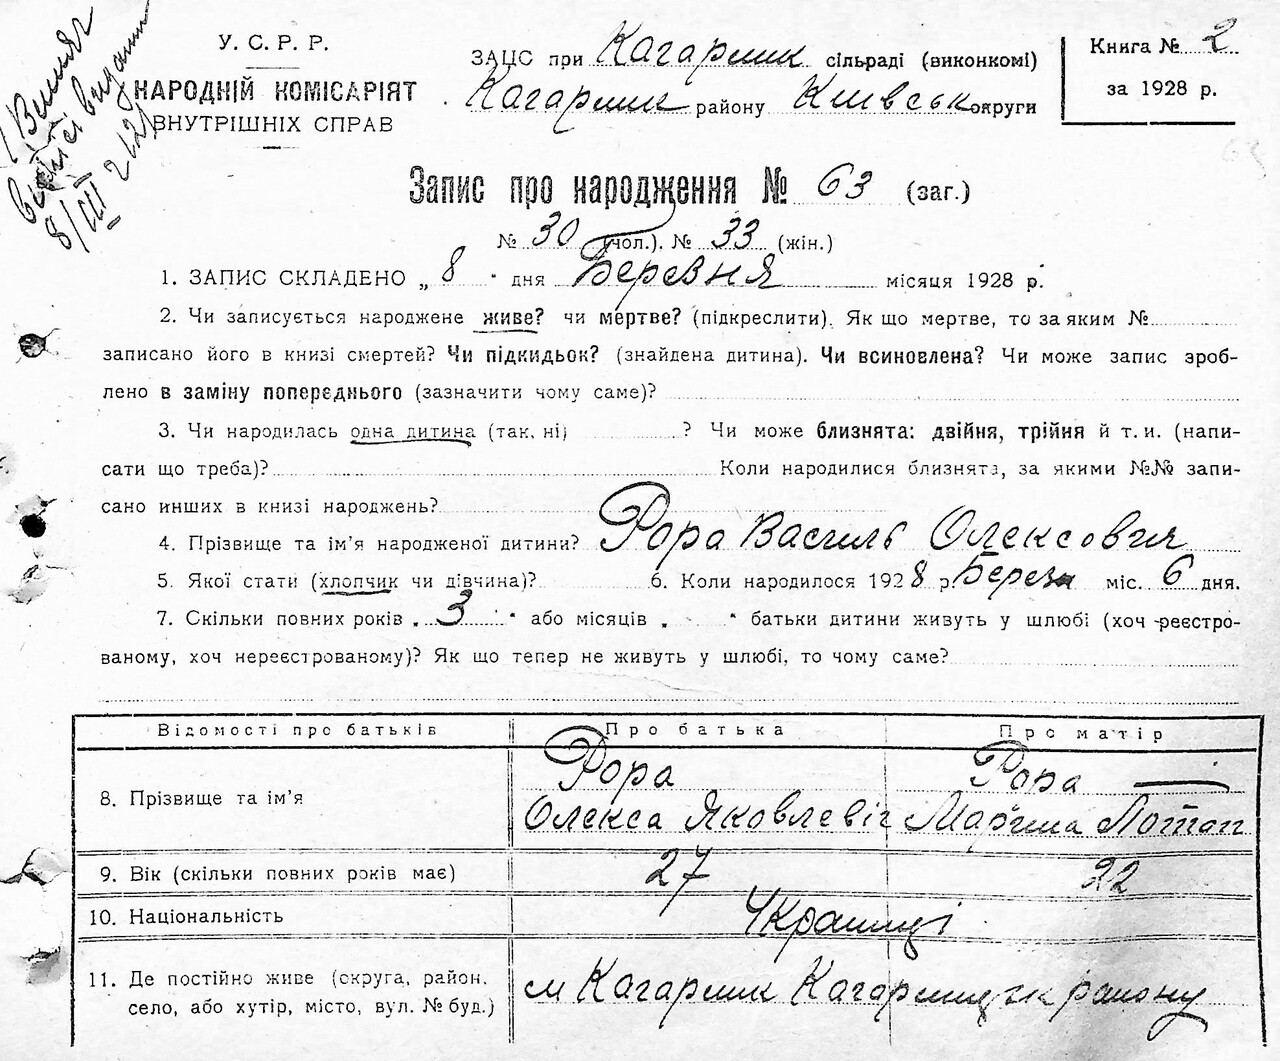 Витяг
8/III
У. С. Р. Р.
НАРОДНІЙ КОМІСАРІЯТ
ВНУТРІШНІХ СПРАВ
ЗАЦС при Кагарлик сільраді (виконкомі)
Кагарлик району Київськ округи
Книга № 2
за 1928 р.
Запис про народження № 63 (заг.)
№ 30 (чол.). № 33 (жін.)
1. ЗАПИС СКЛАДЕНО „ 8 " дня Березня місяця 1928 р.
2. Чи записується народжене живе? чи мертве? (підкреслити). Як що мертве, то за яким №
записано його в книзі смертей? Чи підкидьок? (знайдена дитина). Чи всиновлена? Чи може запис зроб-
лено в заміну попереднього (зазначити чому саме)?
3. Чи народилась одна дитина (так, ні) ? Чи може близнята: двійня, трійня й т. и. (напи-
сати що треба)? Коли народилися близнята, за якими №№ запи-
сано инших в книзі народжень?
4. Прізвище та ім'я народженої дитини? Рора Василь Олексович
5. Якої стати (хлопчик чи дівчина)? 6. Коли народилося 1928 р. Берез міс. 6 дня.
7. Скільки повних років „ 3 " або місяців „ " батьки дитини живуть у шлюбі (хоч реєстро-
ваному, хоч нереєстрованому)? Як що тепер не живуть у шлюбі, то чому саме?
Відомості про батьків Про батька Про матір
8. Прізвище та ім'я Рора Рора
Олекса Яковлевіч Марина Потап
9. Вік (скільки повних років має) 27 22
10. Національність Українці
11. Де постійно живе (округа, район, село, або хутір, місто, вул. № буд.) м Кагарлик Кагарлицьк району